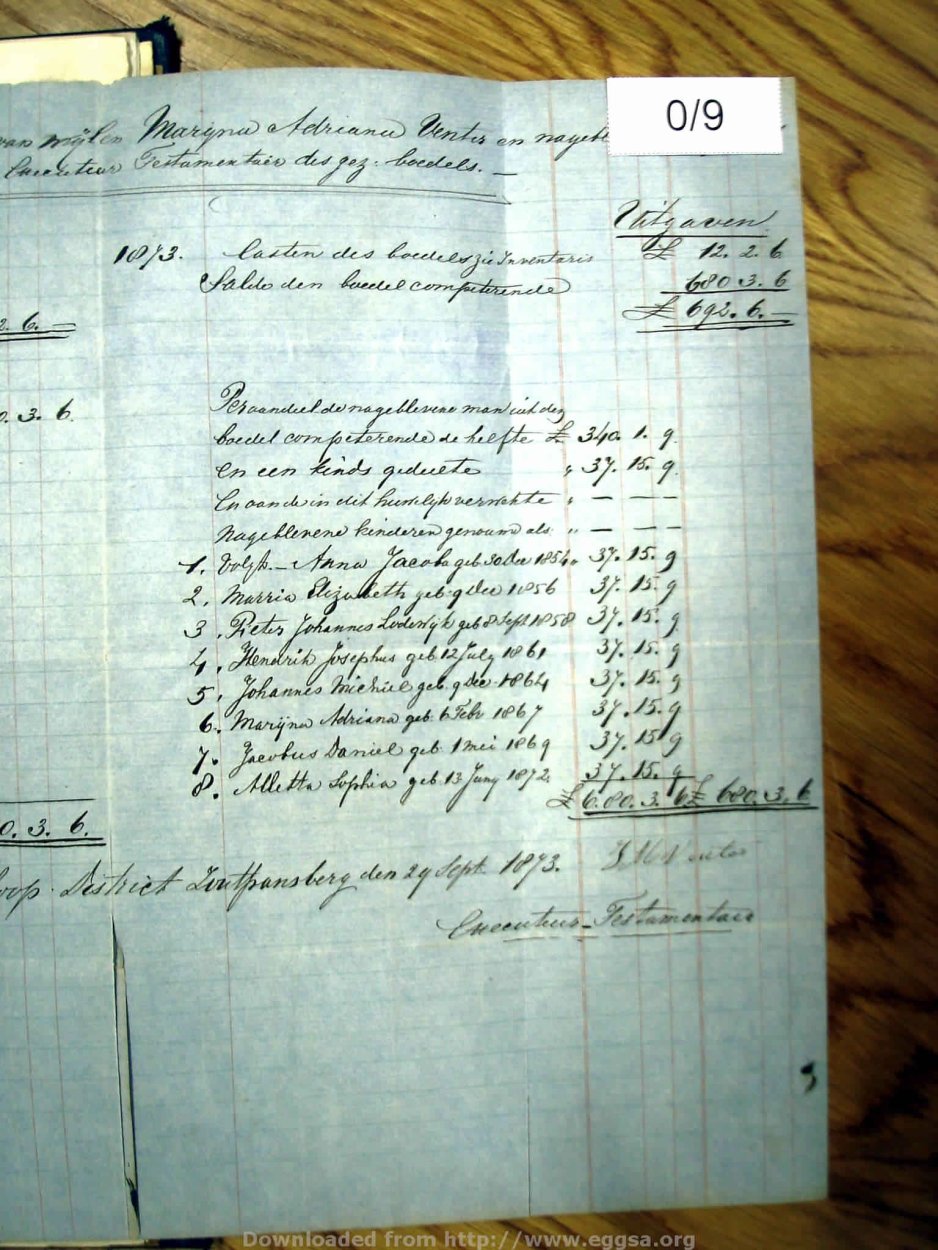 0/9
van wijlen Maryna Adriana Venter en nagebl
Executeur Testamentair des gez. boedels. —
Uitgaven
1873. Lasten des boedels zie Inventaris £ 12. 2. 6
Saldo den boedel competerende 680. 3. 6
£ 692. 6. —
2. 6. —
0. 3. 6
Per aandeel de nageblevene man uit dez
boedel competerende de helfte £ 340. 1. 9.
en een kinds gedeelte " 37. 15. 9.
En aan de in dit huwelyk verwekte " — — —
Nageblevene kinderen genaamd als " — — —
1. Volgt. — Anna Jacoba geb 30 Dec 1854 " 37. 15. 9
2. Marria Elizabeth geb 9 Dec 1856 37. 15. 9
3. Pieter Johannes Lodewyk geb 8 Sept 1858 37. 15. 9
4. Hendrik Josephus geb 12 July 1861 37. 15. 9
5. Johannes Michiel geb. 9 Dec 1864 37. 15. 9
6. Maryna Adriana geb. 6 Febr 1867 37. 15. 9
7. Jacobus Daniel geb 1 mei 1869 37. 15 9
8. Alletta Sophia geb 13 Juny 1872 37. 15. 9
£ 680. 3. 6 £ 680. 3. 6
0. 3. 6.
District Zoutpansberg den 29 Sept. 1873. Venter
Executeur-Testamentair
Downloaded from http://www.eggsa.org